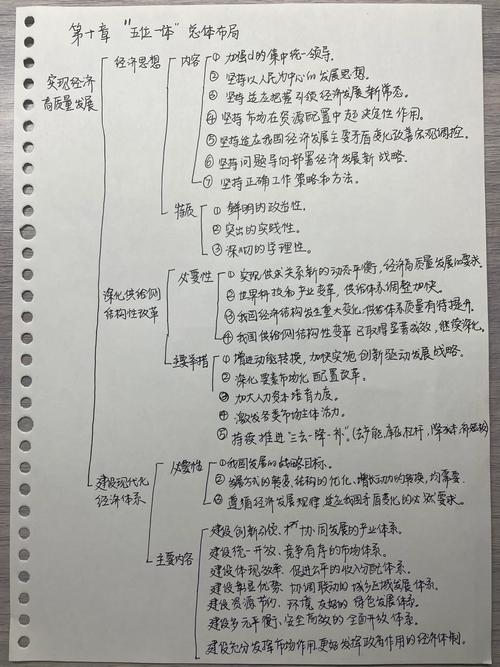 第十章 "五位一体"总体布局
实现经济高质量发展
经济思想
内容
① 加强d的集中统一领导。
② 坚持以人民为中心的发展思想。
③ 坚持适应把握引领经济发展新常态。
④ 坚持市场在资源配置中起决定性作用。
⑤ 坚持适应我国经济发展主要矛盾变化改善宏观调控。
⑥ 坚持问题导向部署经济发展新战略。
⑦ 坚持正确工作策略和方法。
特质
① 鲜明的政治性。
② 突出的实践性。
③ 深切的学理性。
深化供给侧结构性改革
必要性
① 实现供求关系新的动态平衡,经济高质量发展的要求。
② 世界科技和产业变革,供给体系调整加快。
③ 我国经济结构发生重大变化,供给体系质量有待提升。
④ 我国供给侧结构性变革已取得显著成效,继续深化。
主要举措
① 增进动能转换,加快实施创新驱动发展战略。
② 深化要素市场化配置改革。
③ 加大人力资本培育力度。
④ 激发各类市场主体活力。
⑤ 持续推进"三去一降一补"。(去产能,库存,杠杆,降成本,补短板)
建设现代化经济体系
必要性
① 我国发展的战略目标。
② 发展方式的转变,结构的优化、增长动力的转换,均需要。
③ 遵循经济发展规律,适应我国矛盾变化的必然要求。
主要内容
建设创新引领、协同发展的产业体系。
建设统一开放、竞争有序的市场体系。
建设体现效率、促进公平的收入分配体系。
建设彰显优势、协调联动的城乡区域发展体系。
建设资源节约、环境友好的绿色发展体系。
建设多元平衡、安全高效的全面开放体系。
建设充分发挥市场作用,更好发挥政府作用的经济体制。